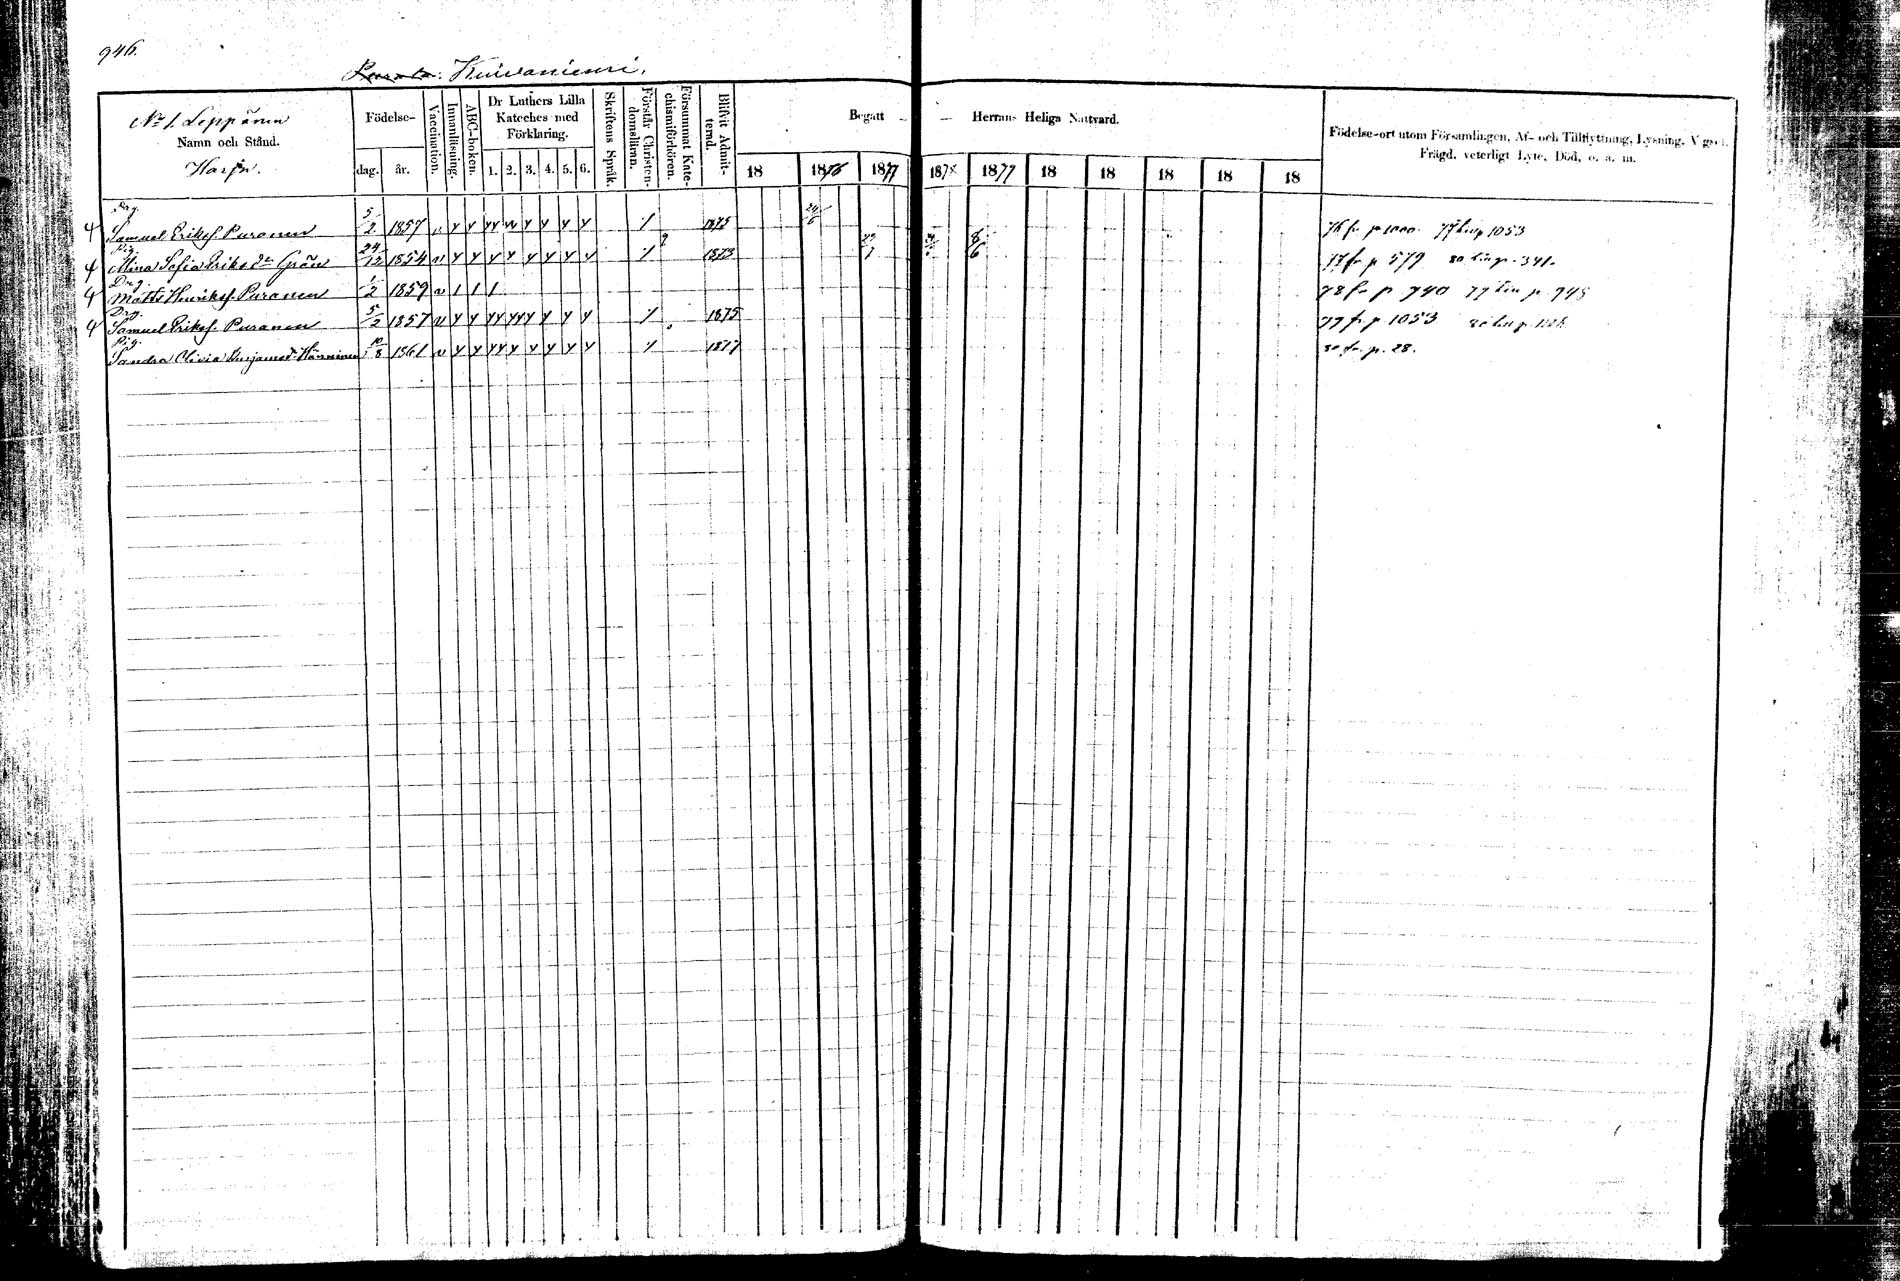 946.
Purala. Kuivaniemi.
No 1. Leppänen
Namn och Stånd.
Födelse-
dag. år.
Vaccination.
Innanläsning.
ABC-boken.
Dr Luthers Lilla
Kateches med
Förklaring.
1. 2. 3. 4. 5. 6.
Skriftens Språk.
Förstår Christen-
domslitan.
Försummat Kate-
chismiförhören.
Blifvit Admit-
terad.
Begått Herrans Heliga Nattvard.
18 1876 1877 1878 1879 18 18 18 18 18
Födelse-ort utom Församlingen, Af- och Tillflyttning, Lysning, Vigsel,
Frägd, veterligt Lyte, Död, o. a. m.
Drg.
4 Samuel Eriksf. Puranen 5/2 1857 v y y yy y y y y 1 1875 24/6 76 fr p 1000. 77 till p 1053
Pig.
4 Mina Sofia Eriks dr Grön 24/12 1854 v y y y y y y y y 1 1873 8/6 77 fr p 579 80 till p. 341.
Drg.
4 Matts Henriksf. Puranen 1/2 1859 v 1 1 1 78 fr p 940 77 till p 945
Drg.
4 Samuel Eriksf. Puranen 5/2 1857 v y y yy yyy y y y y 1 1875 79 fr p 1053
Pig.
Sandra Olivia Benjamsdr Hänninen 10/8 1861 v y y yy y y y y y 1 1877 80 fr. p. 28.